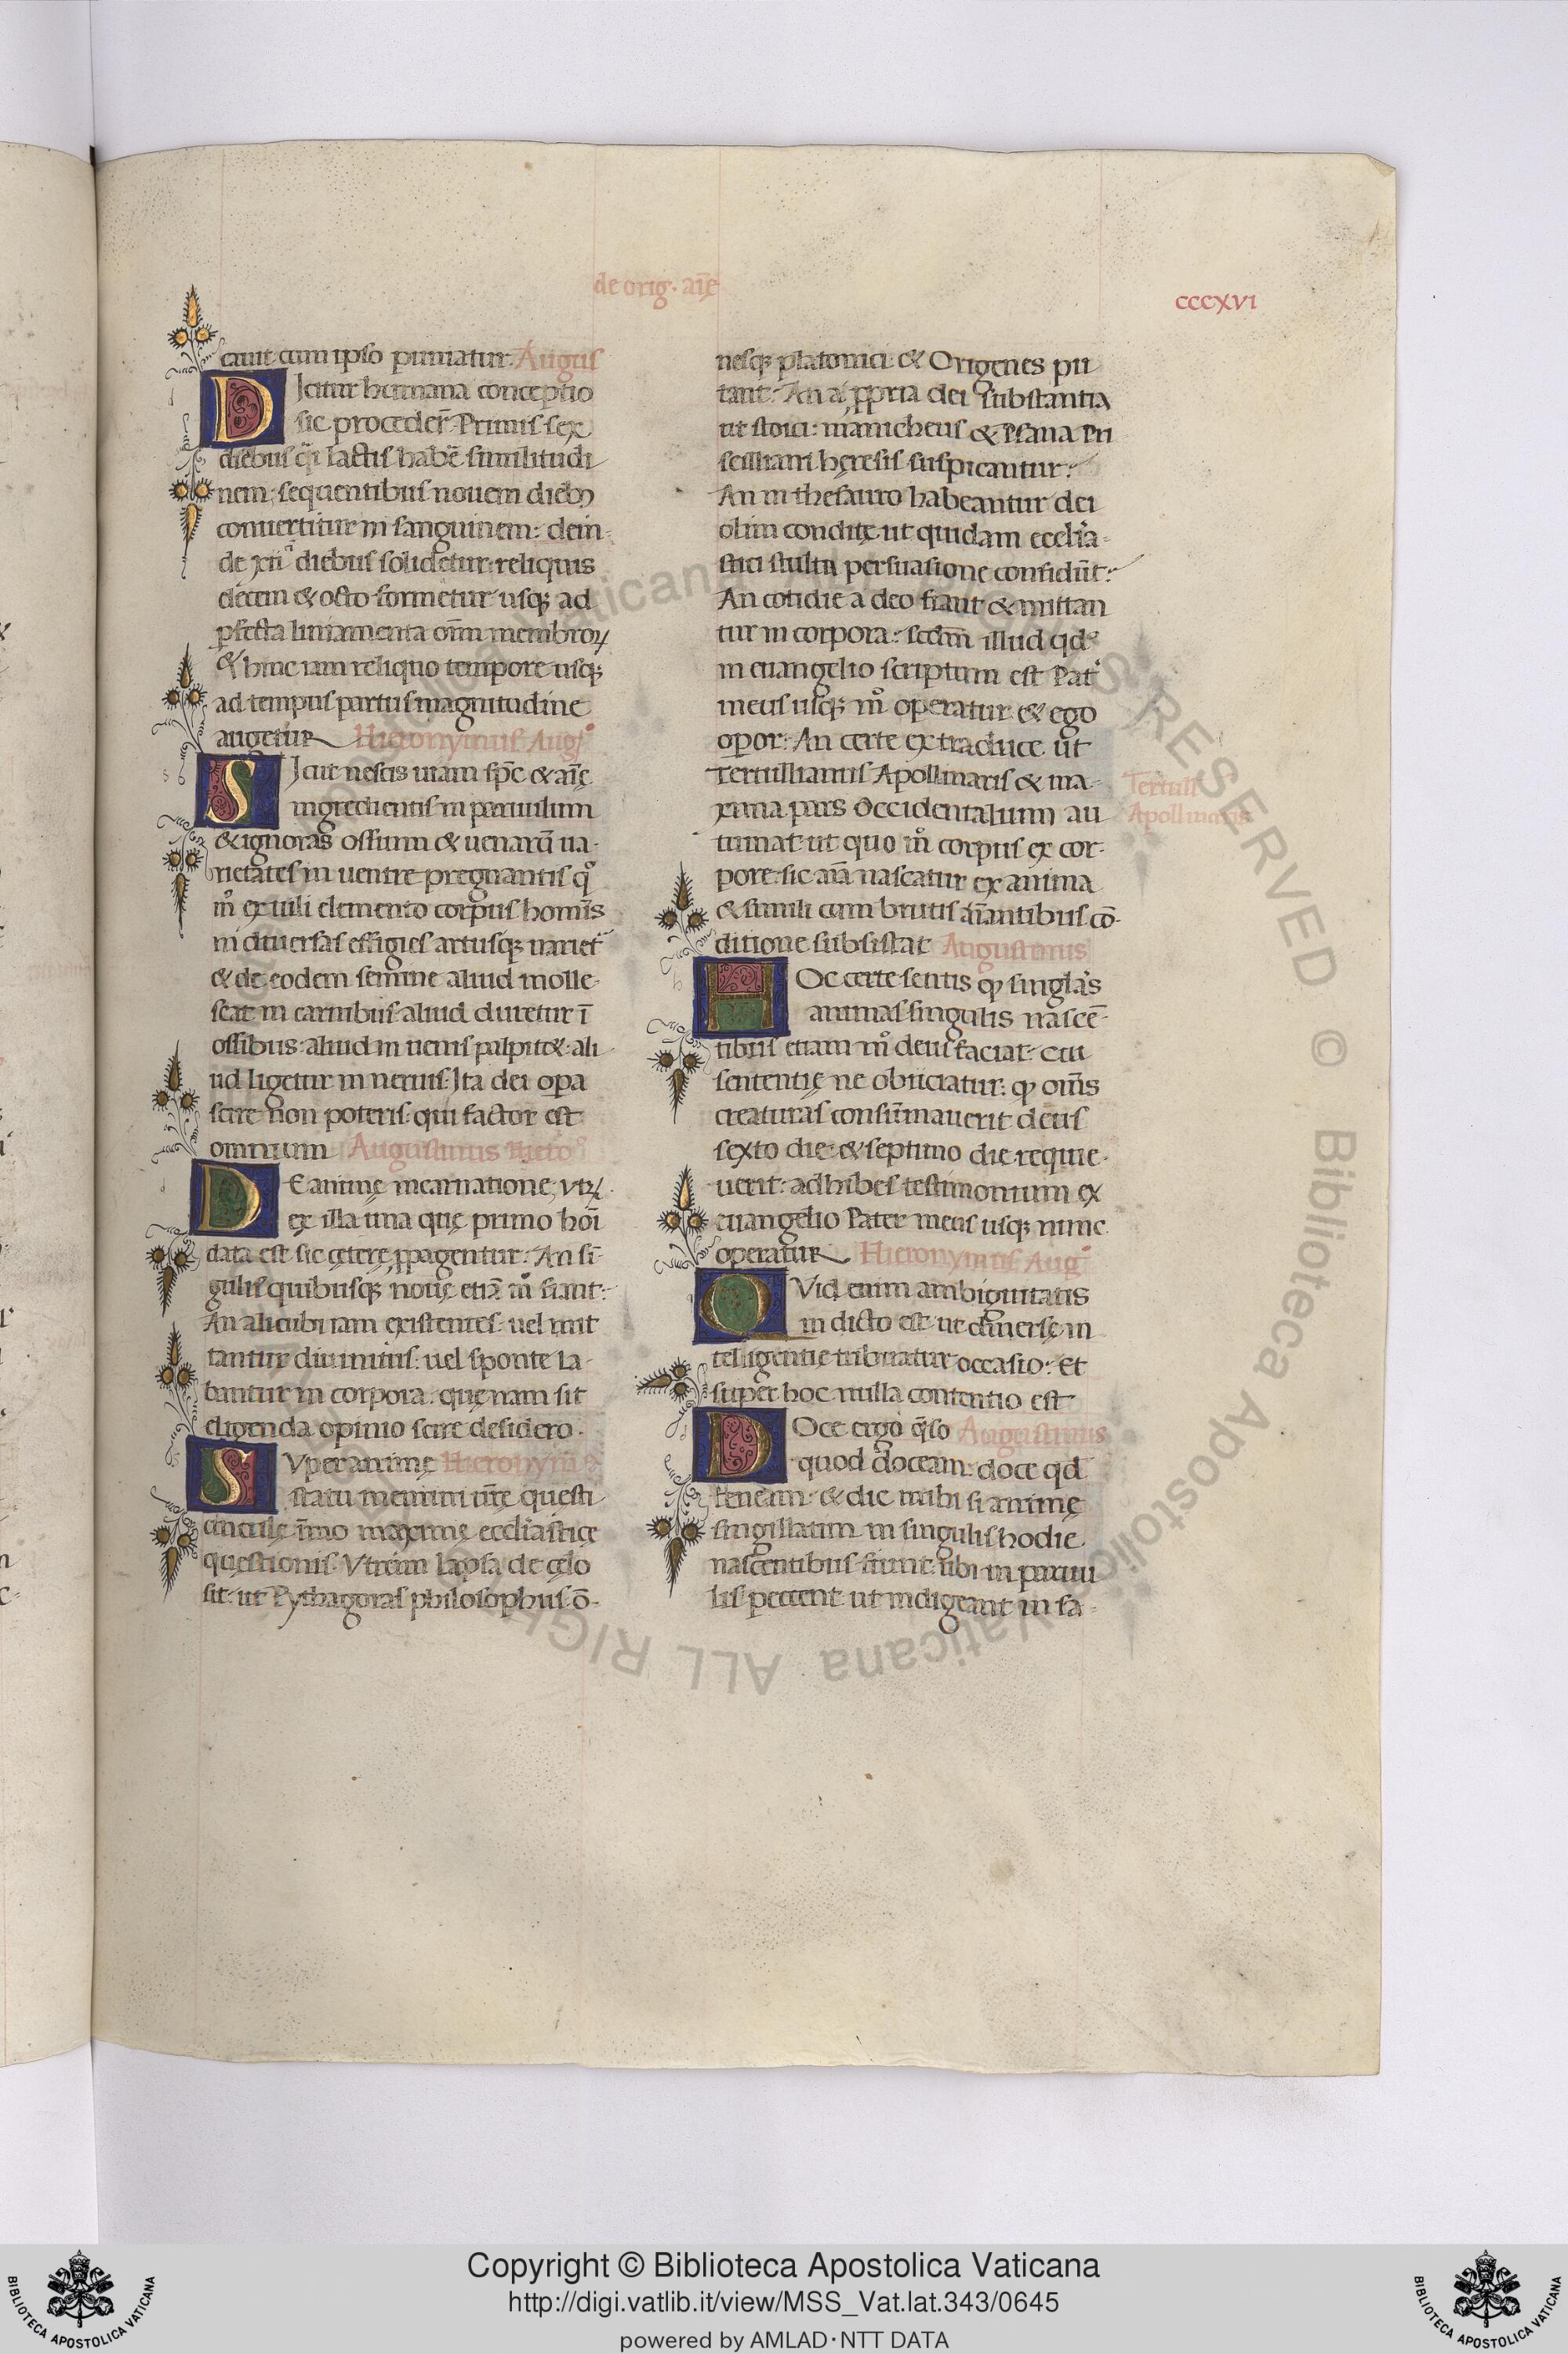 de orig. aīę
cccxvi
cauit cum ipso puniatur. Augus
DIcitur humana conceptio
sic procedeř. Primis sex
diebus q̄i lactis habē similitudi
nem: sequentibus nouem dieb9
conuertitur in sanguinem: dein-
de xii diebus solidetur: reliquis
decem & octo formetur usq; ad
pfecta liniamenta om̄ membroꝝ
& hinc iam reliquo tempore usq;
ad tempus partus magnitudine
augetur Hieronymus Aug.
SIcut nescis uiam sp̄c & aīę
ingredientis in paruulum
& ignoras ossium & uenarū ua-
rietates in uentre pregnantis qͦ
m̊ ex uili elemento corpus homīs
in diuersas effigies artusq; uariet̄
& de eodem semine aliud molle-
scat in carnibus: aliud duretur ī
ossibus: aliud in uenis palpit&: ali
ud ligetur in neruis: Ita dei opa
scire non poteris: qui factor est
omnium Augustinus Hiero
DE animę incarnatione, vtꝝ
ex illa una quę primo hoī
data est sic cęterę ꝓpagentur: An sī-
gulis quibusq; nouę etiā m̊ fiant:
An alicubi iam existentes: uel mit
tantur diuinitus: uel sponte la-
bantur in corpora: quęnam sit
eligenda opinio scire desidero.
SVper animę Hieronym9
statu memini ur̄ę questi
unculę īmo maxime eccl̄iasticę
questionis. Vtrum lapsa de cęlo
sit: ut Pythagoras philosophus: ō-
nesq; platonici & Origenes pu
tant: An a ꝓpria dei substantia
ut stoici: manicheus & Spana Pri
scilliani hęresis suspicantur:
An in thesauro habeantur dei
olim conditę ut quidam eccl̄ia-
stici stulta persuasione confidūt:
An cotidie a deo fiant & mittan
tur in corpora: scdm̄ illud qd
in euangelio scriptum est Pat̄
meus usq; m̊ operatur & ego
opor: An certe ex traduce ut
Tertullianus Apollinaris & ma-
xima pars Occidentalium au
tumat ut quo m̊ corpus ex cor-
pore: sic aīa nascatur ex anima
& simili cum brutis aīantibus cō-
ditione subsistat Augustinus
HOc certe sentis qp singlās
animas singulis nascē-
tibus etiam m̊ deus faciat: Cui
sententię ne obiiciatur: qp om̄s
creaturas consūmauerit deus
sexto die: & septimo die requie-
uerit: adhibes testimonium ex
euangelio Pater meus usq; nunc
operatur Hieronymus Aug
QVid enim ambiguitatis
in dicto est ut diuersę in
telligentię tribuatur occasio: Et
super hoc nulla contentio est
DOce ergo q̄so Augustinus
quod doceam: doce qd
teneam: & dic mihi si animę
singillatim in singulis hodie
nascentibus fiunt: ubi in paruu
lis peccent ut indigeant in sa-
Tertull
Apollinaris
Copyright © Biblioteca Apostolica Vaticana
http://digi.vatlib.it/view/MSS_Vat.lat.343/0645
powered by AMLAD·NTT DATA
BIBLIOTECA APOSTOLICA VATICANA
BIBLIOTECA APOSTOLICA VATICANA